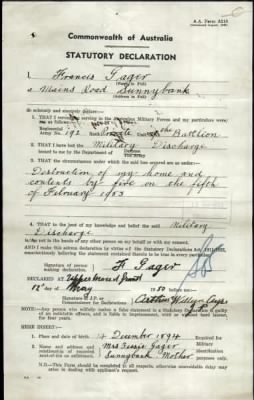 A.A. Form A113
Commonwealth of Australia
STATUTORY DECLARATION
I, Francis Gager
(Name in Full)
of Mains Road Sunnybank
(Address in Full)
do solemnly and sincerely declare—
1. THAT I serving in the Military Forces and my particulars were:
Army No. 192 Rank Private Unit 9th Battlion
2. THAT I have lost the Military Discharge
issued to me by the Department of
3. THAT the circumstances under which the said loss occurred are as follows:—
Destruction of my home and
contents by fire on the fifth
of February 1953
4. THAT to the best of my knowledge and belief the said Military
Discharge
is not in the possession of any other person on my behalf or with my consent.
AND I make this solemn declaration by virtue of the Statutory Declarations Act
conscientiously believing the statements contained therein to be true in every particular.
Signature of person making declaration F Gager
DECLARED AT Upper Mount Gravatt
12th day of May
Before me,
Signature of J.P. or Commissioner for Declarations
NOTE.—Any person who wilfully makes a false statement in a Statutory Declaration is guilty of an indictable offence, and is liable to imprisonment, with or without hard labour, for four years.
HERE INSERT:
1. Place and date of birth 14 December 1894
2. Name and address and relationship of recorded next of kin on enlistment
Mrs Gager
Sunnybank Mother
Required for Military identification purposes.
N.B.—This Form should be completed in all respects, otherwise unavoidable delay may arise in dealing with applicant's request.